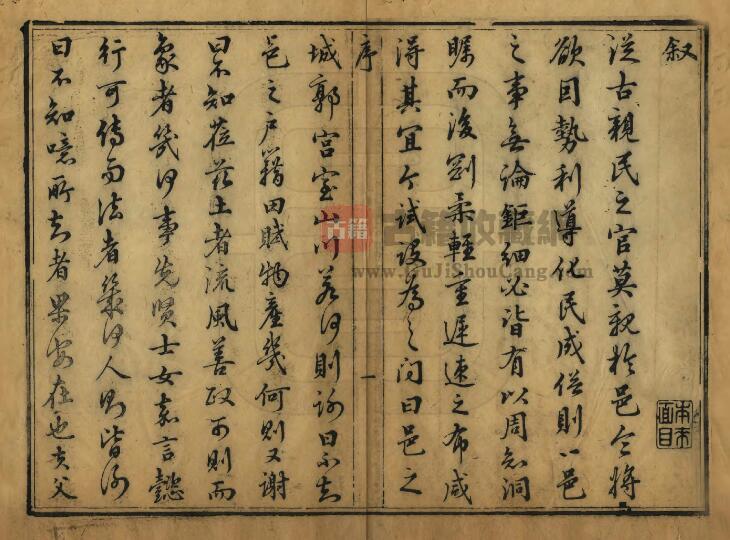 叙
從古親民之官莫親於邑令將
欲因勢利導化民成俗則一邑
之事無論鉅細必皆有以周知洞
矚而後剛柔輕重遲速之布咸
得其宜今試設為之問曰邑之
序
一
城郭宮室山川若何則謝曰不知
邑之戶籍田賦物產幾何則又謝
曰不知蒞茲土者流風善政可則而
象者幾何事先賢士女嘉言懿
行可傳而法者幾何人則皆謝
曰不知噫所知者果安在也夫父
本來面目
古籍
古籍收藏網
www.GuJiShouCang.com